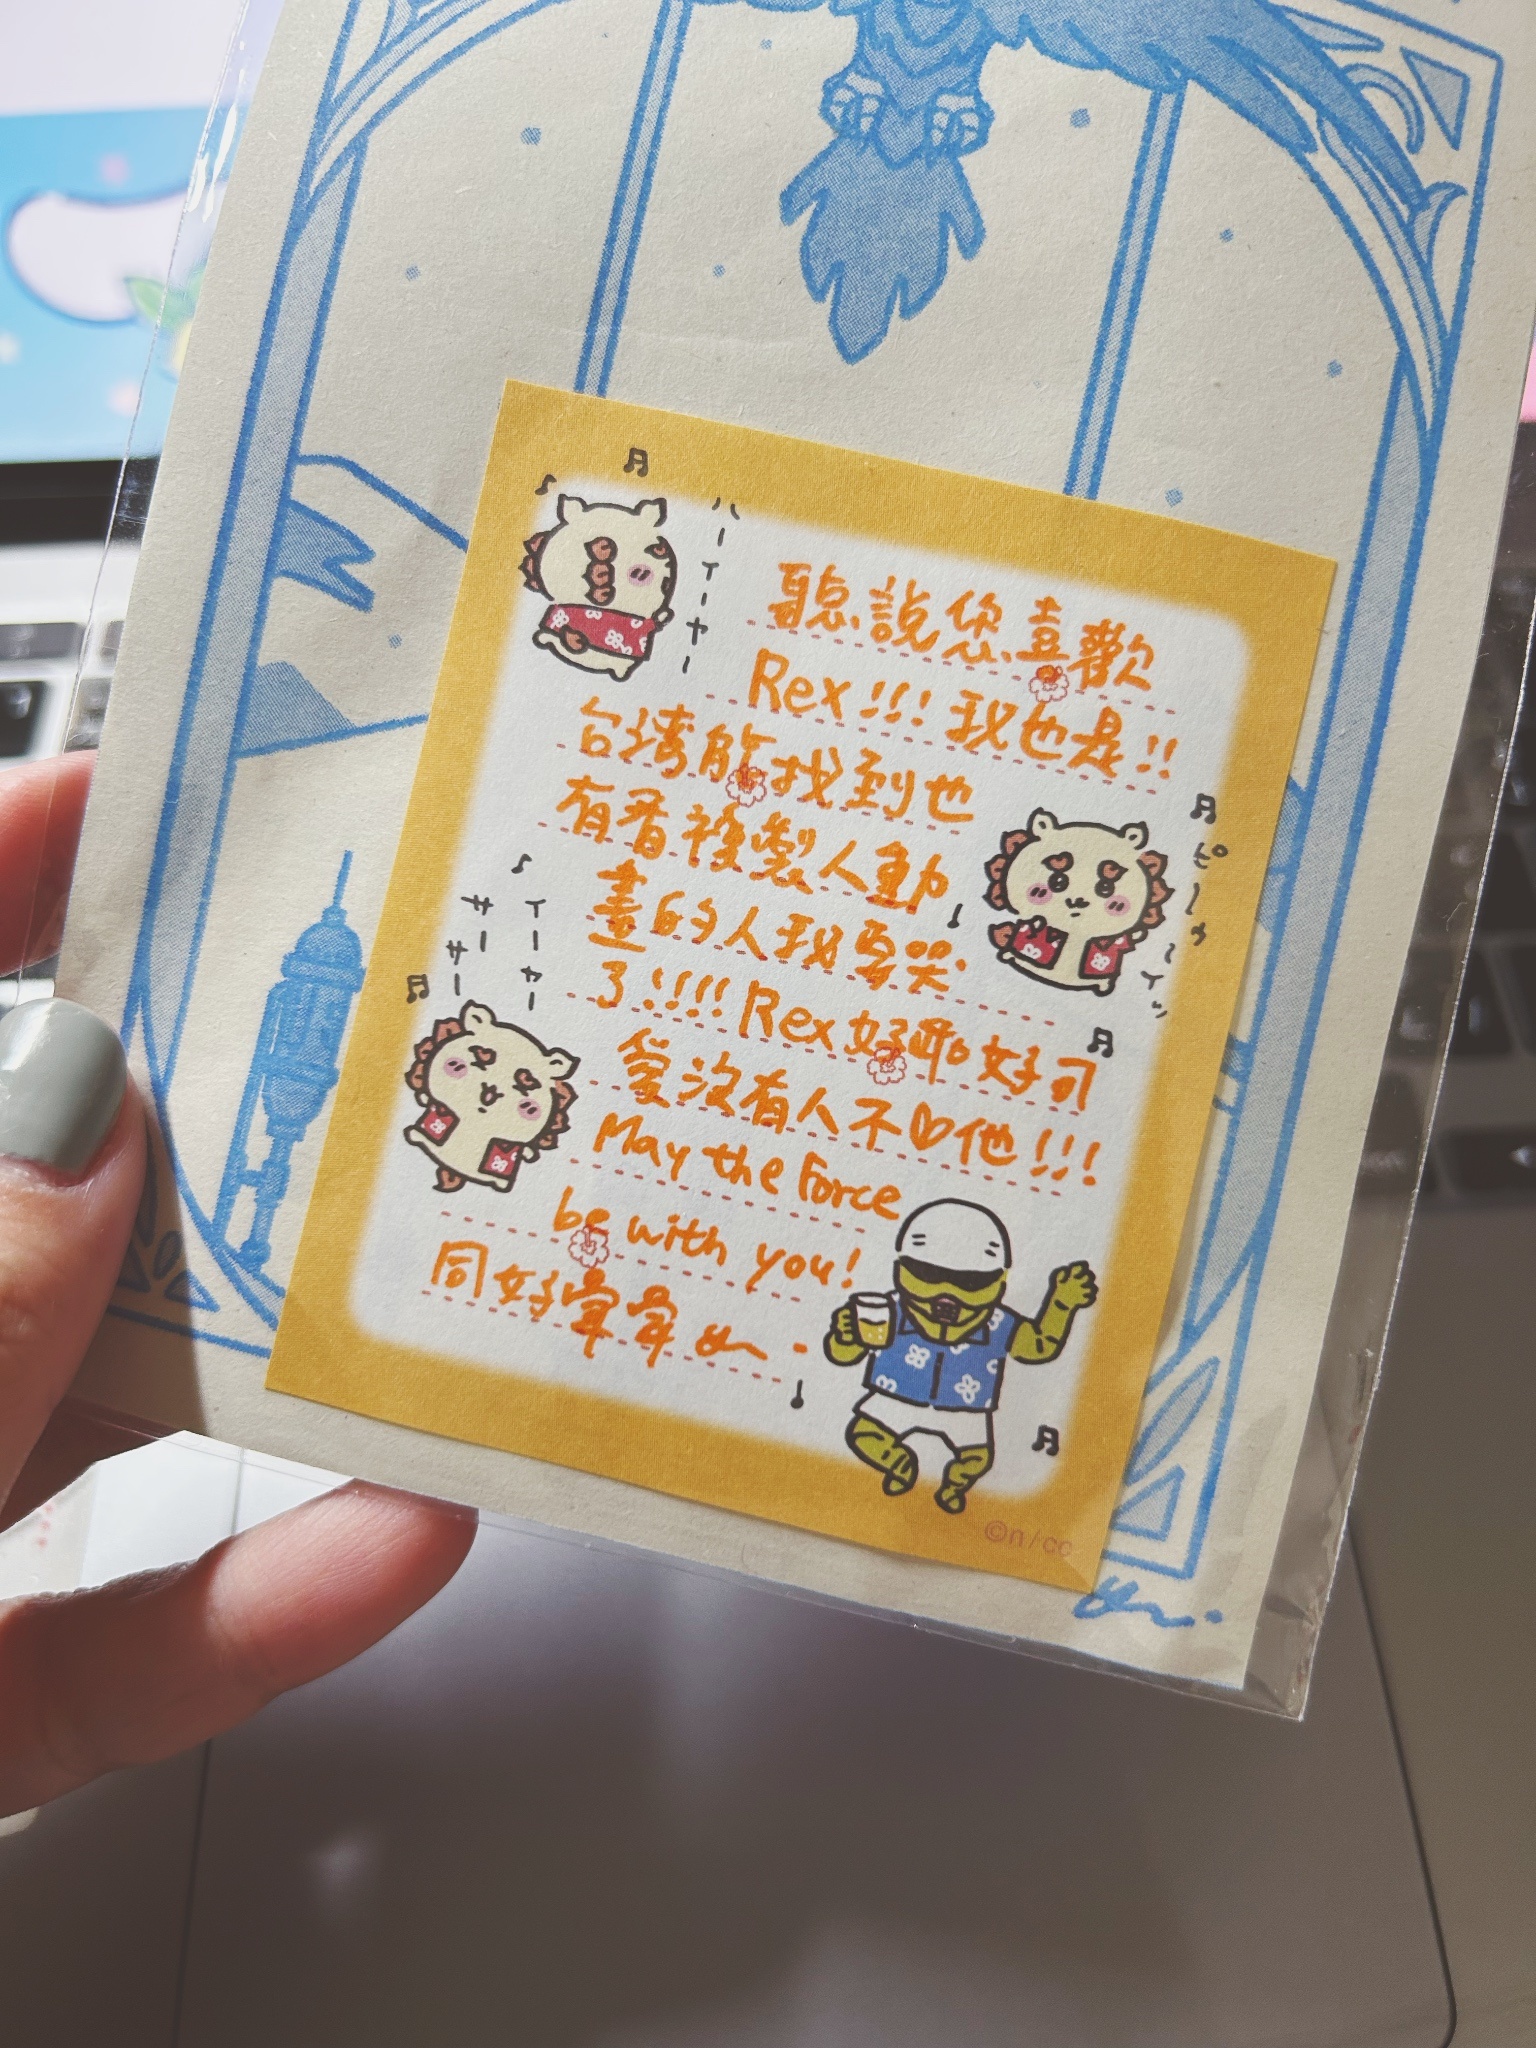 ハーイーヤー
聽說您喜歡
Rex!!! 我也是!!
台灣能找到也
有看複製人動
畫的人我要哭
了!!!!! Rex 好乖好可
愛沒有人不♡他!!!
May the Force
be with you!
同好
サー サー
イーヤー
ピーゥ〜イッ
©n/cc